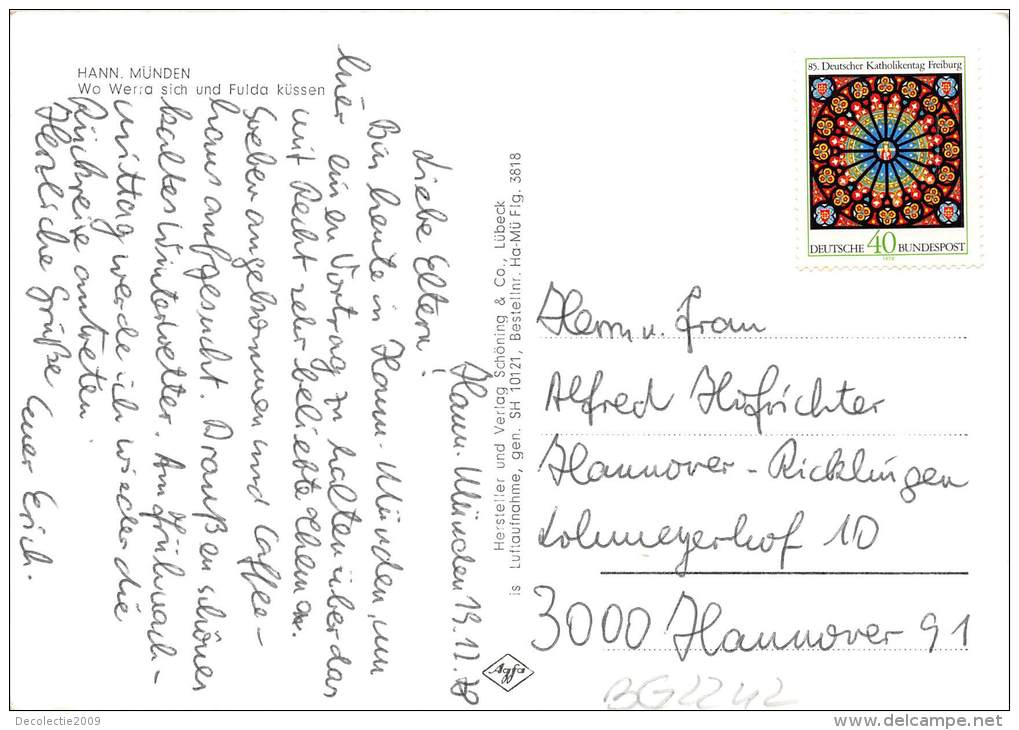 HANN. MÜNDEN
Wo Werra sich und Fulda küssen
Hann. Münden 13.12.78
Liebe Eltern!
Bin heute in Hann. Münden, um
hier einen Vortrag zu halten über das
mit Recht sehr beliebte Thema.
Soeben angekommen und Caffee-
haus aufgesucht. Draußen schönes
kaltes Winterwetter. Am Frühnach-
mittag werde ich wieder die
Rückreise antreten.
Herzliche Grüße Euer Erich.
Hersteller und Verlag Schöning & Co., Lübeck
is Luftaufnahme, gen. SH 10121, Bestellnr. Ha-Mü Flg. 3818
Agfa
85. Deutscher Katholikentag Freiburg
DEUTSCHE 40 BUNDESPOST
1978
Herrn u. Frau
Alfred Hofrichter
Hannover-Ricklingen
Lohmeyerhof 10
3000 Hannover 91
BG2242
Decolectie2009
www.delcampe.net